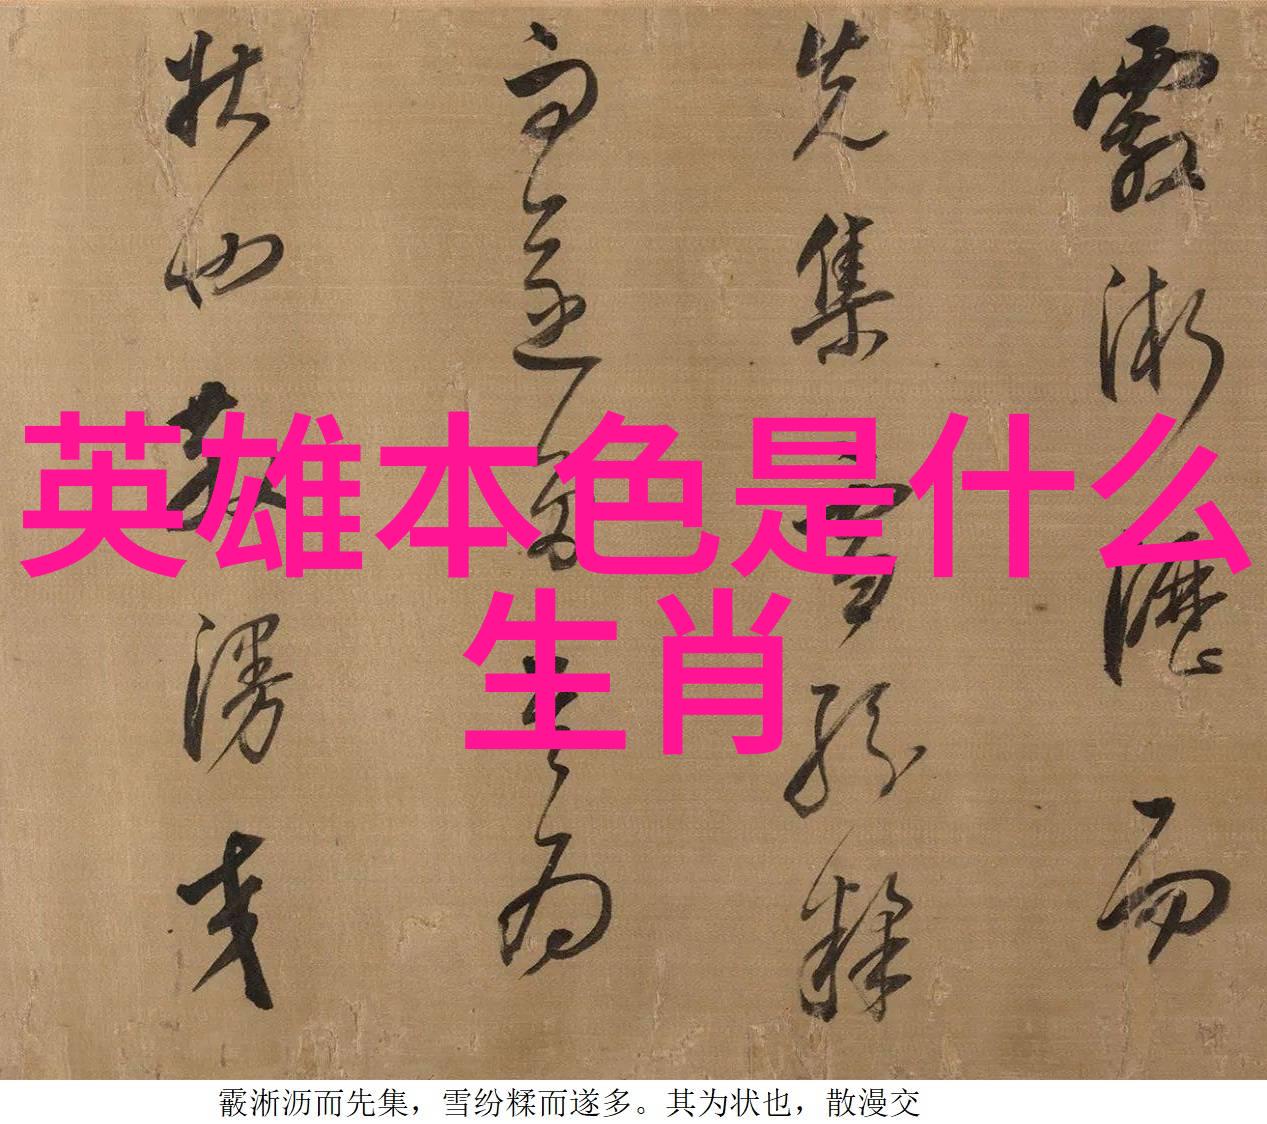 霰淅瀝而
先集雪紛糅
而遂多其為
狀也散漫交
英雄本色是什么
生肖
霰淅沥而先集，雪纷糅而遂多。其为状也，散漫交